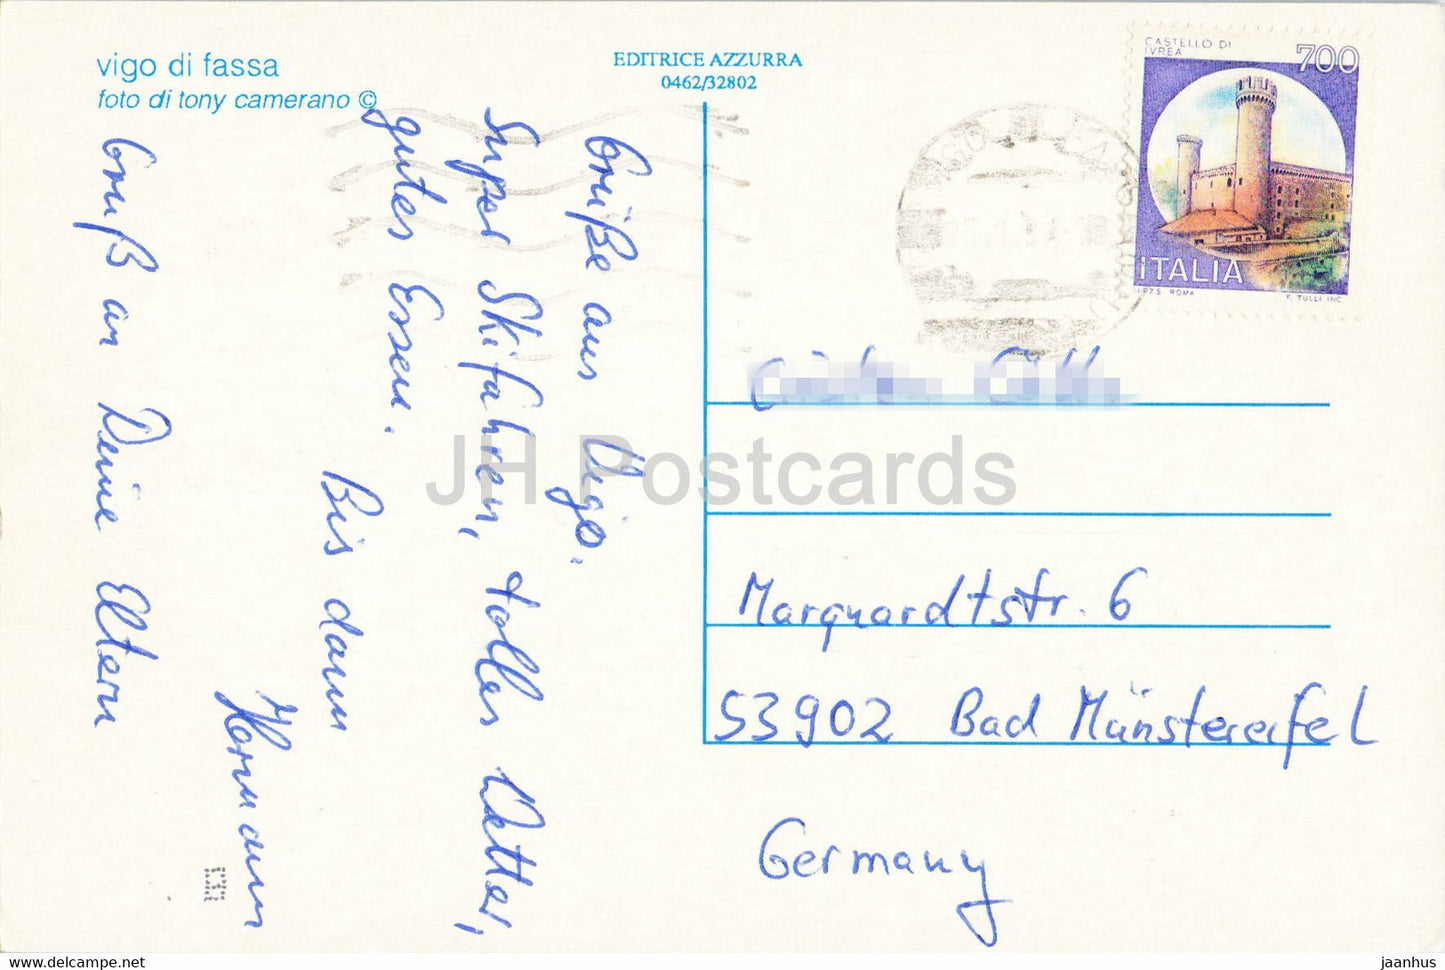 vigo di fassa
foto di tony camerano ©
EDITRICE AZZURRA
0462/32802
CASTELLO DI
IVREA
700
ITALIA
1975 ROMA
F. TULLI INC.
Grüße aus Vigo.
Super Skifahren, tolles Wetter,
gutes Essen.
Bis dann
Hermann
Gruß an Deine Eltern
Marquardtstr. 6
53902 Bad Münstereifel
Germany
JH Postcards
delcampe.net
jaanhus